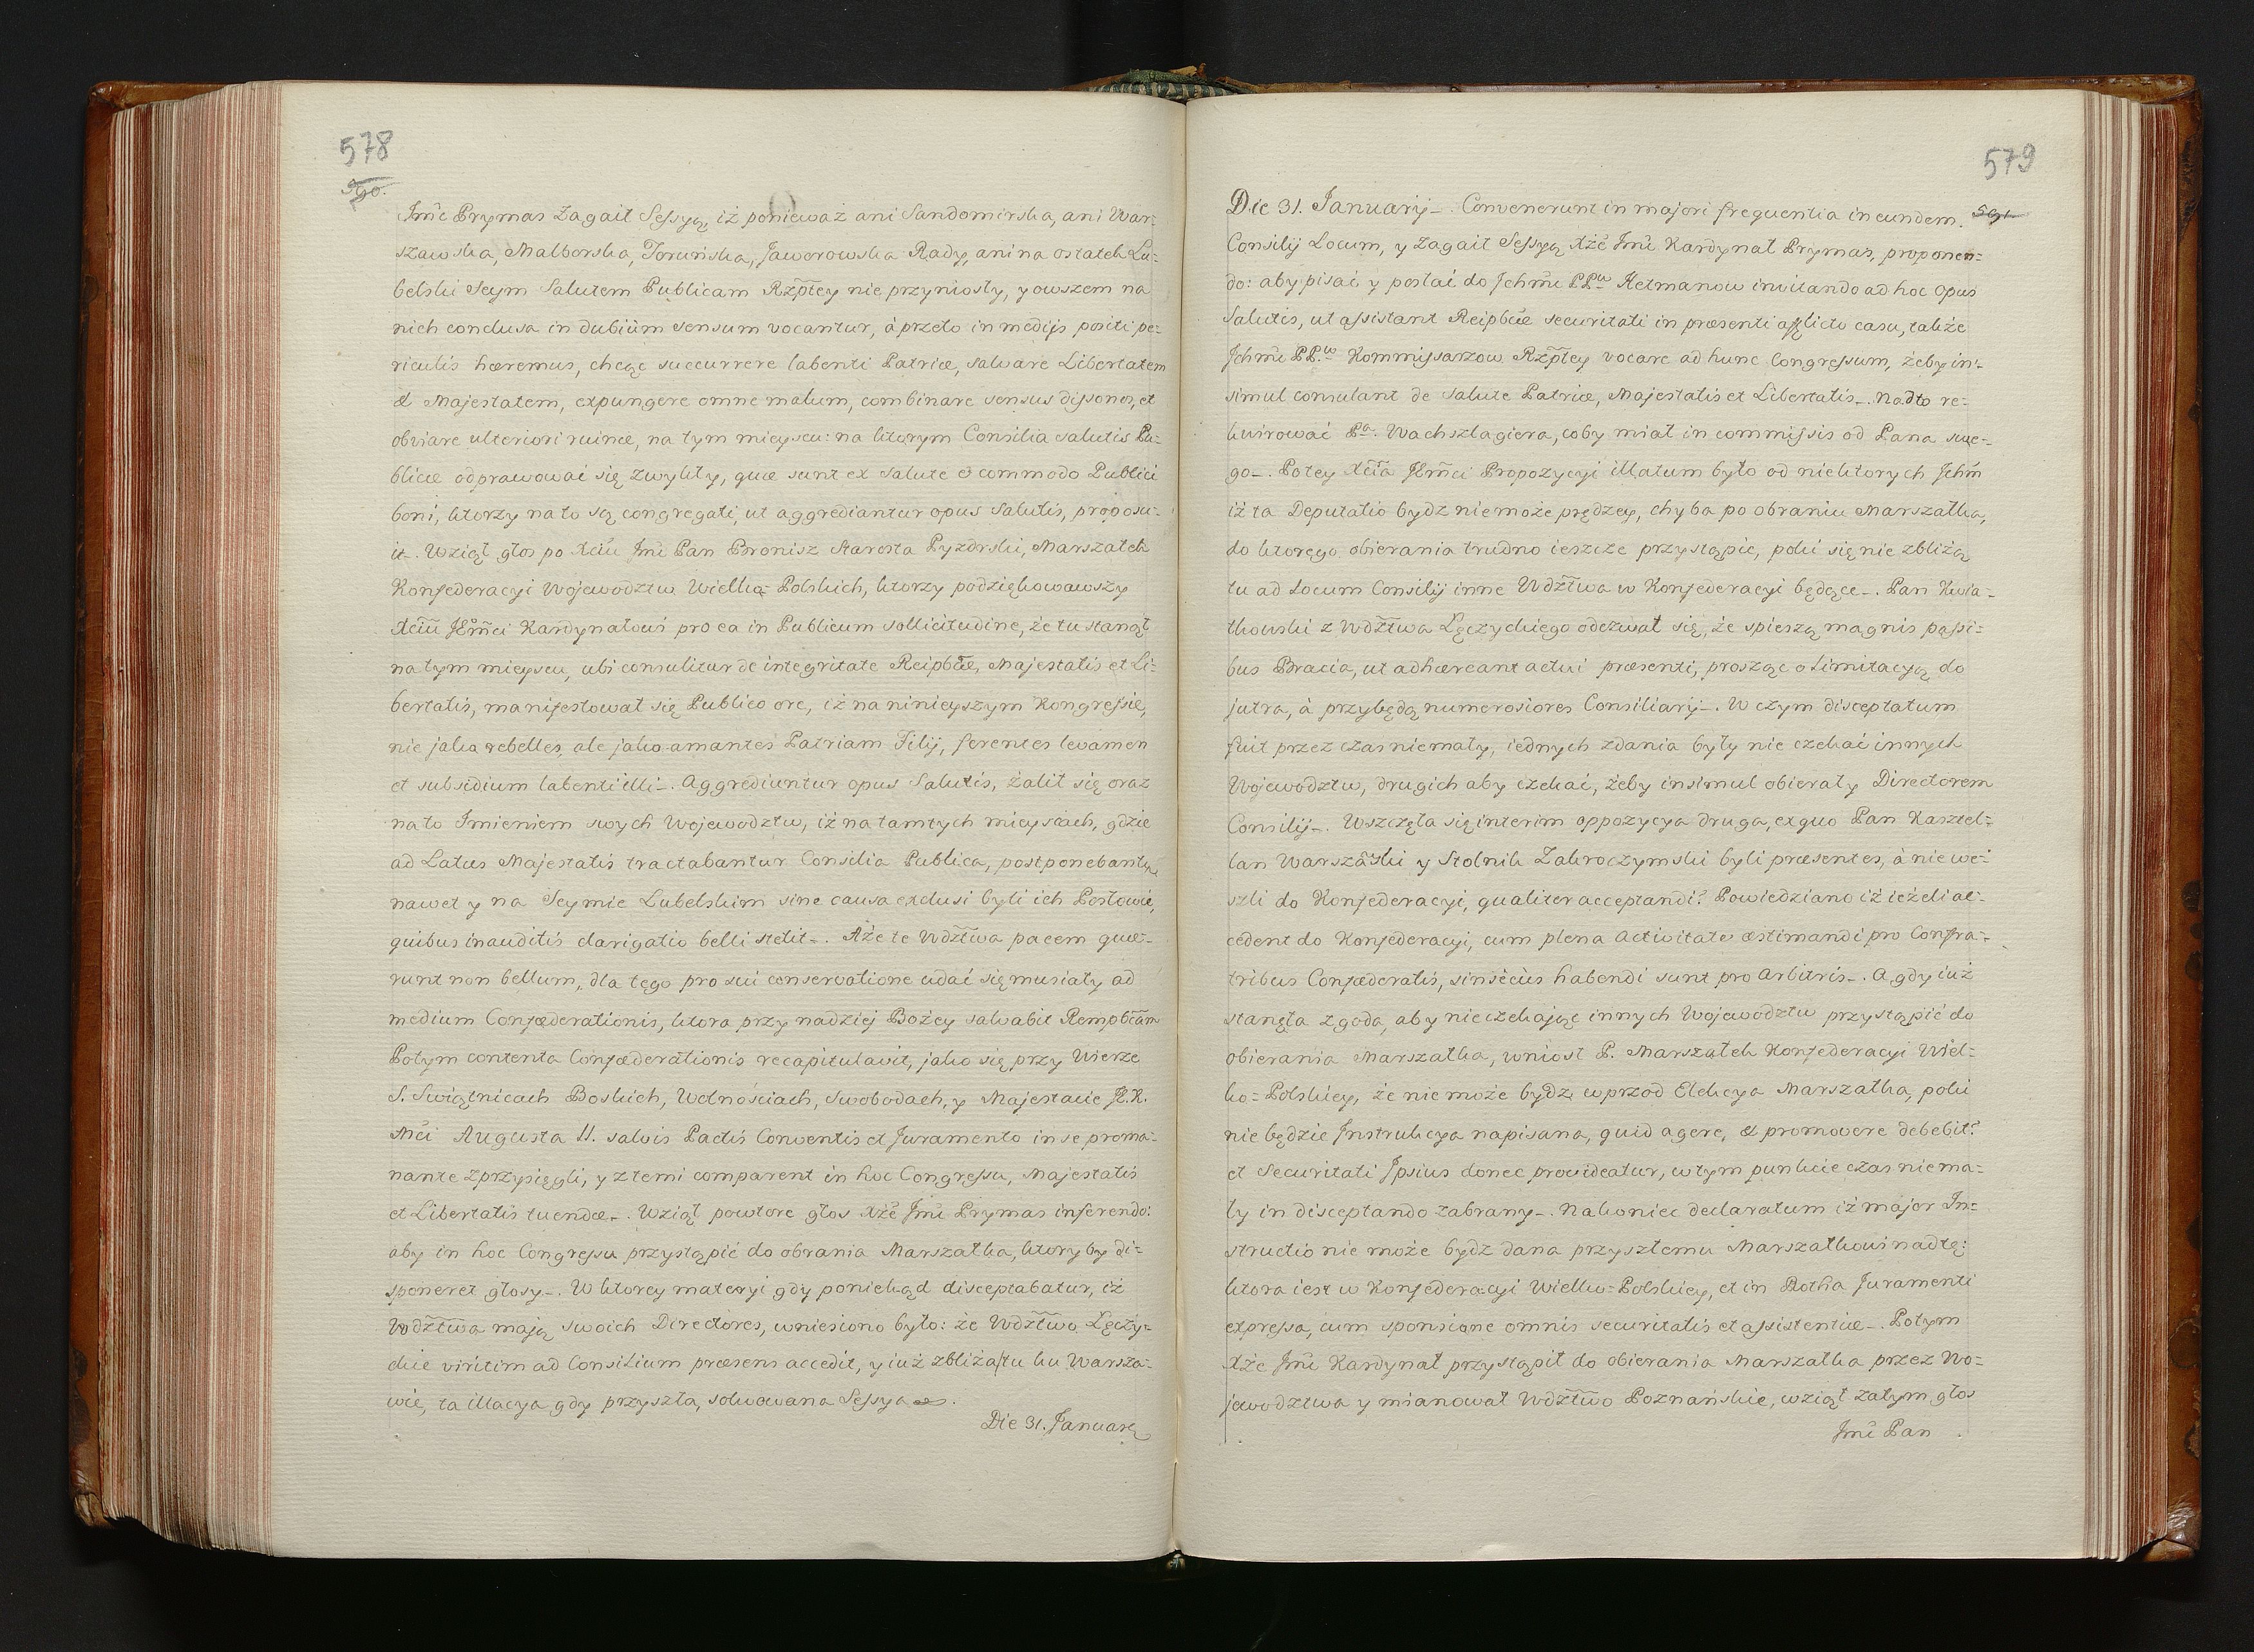 578
590.
Jm̃c Prymas Zagaił Sessyą, iż ponieważ ani Sandomirska, ani War=
szawska, Malborska, Toruńska, Jaworowska Rady, ani na ostatek Lu=
belski Seym Salutem Publicam Rzpltey nie przyniosły, y owszem na
nich conclusa in dubiūm sensum vocantur, à przeto in medijs positi pe=
riculis hæremus, chcąc succurrere labenti Patriæ, salvare Libertatem
& Majestatem, expungere omne malum, combinare sensus dissonos, et
obviare ulteriori ruinæ, na tym mieyscu: na ktorym Consilia salutis Pu=
blicæ odprawować się zwykły, quæ sunt ex salute & commodo Publici
boni, ktorzy na to są congregati, ut aggrediantur opus Salutis, proposu=
it. Wziął głos po Xciu Jm̃c Pan Bronisz Starosta Pyzdrski, Marszałek
Konfederacyi Wojewodztw Wielko=Polskich, ktorzy podziękowawszy
Xciũ JEm̃ci Kardynałowi pro ea in Publicum sollicitudine, że tu stanął
na tym mieyscu, ubi consulitur de integritate Reipb̃æ, Majestatis et Li=
bertatis, manifestował się Publico ore, iż na ninieyszym Kongressie,
nie jako rebelles, ale jako amantes Patriam Filij, ferentes levamen
et subsidium labenti illi_. Aggrediuntur opus Salutis, żalił się oraz
na to Imieniem swych Wojewodztw, iż na tamtych mieyscach, gdzie
ad Latus Majestatis tractabantur Consilia Publica, postponebantur
nawet y na Seymie Lubelskim sine causa exclusi byli ich Posłowie,
quibus inauditis clarigatio belli stetit_. Aże te Wdztwa pacem quæ=
runt non bellum, dla tego pro sui conservatione udać się musiały ad
medium Confæderationis, ktora przy nadziej Bożey salvabit Rempb̃cam
Potym contenta Confæderationis recapitulavit, jako się przy Wierze
S. Swiątnicach Boskich, Wolnościach, Swobodach, y Majestacie J.K.
Mći Augusta II. salvis Pactis Conventis et Juramento in se proma=
nante zprzysięgli, y z temi comparent in hoc Congressu, Majestatis
et Libertatis tuendæ_. Wziął powtore głos Xże Jm̃c Prymas inferendo:
aby in hoc Congressu przystąpić do obrania Marszałka, ktoryby di=
sponeret głosy_. W ktorey materyi gdy poniekąd disceptabatur, iż
Wdztwa mają swoich Directores, wniesiono było: że Wdztwo Łęczy=
ckie viritim ad Consilium præsens accedit, y iuż zbliża tu ku Warsza=
wie, ta illacya gdy przyszła, solwowana Sessya.
Die 31. January
579
591
Die 31. January_. Convenerunt in majori frequentia in eundem.
Consilij Locum, y zagaił Sessyą Xże Jm̃c Kardynał Prymas, proponen=
do: aby pisać y posłać do Jchm̃c PPw Hetmanow invitando ad hoc opus
Salutis, ut assistant Reipb̃cæ securitati in præsenti afflicto casu, także
Jchm̃c PP.w Kommissarzow Rzpltey vocare ad hunc Congressum, żeby in=
simul consulant de salute Patriæ, Majestatis et Libertatis_. Nadto re=
kwirować Pa. Wachszlagiera, coby miał in commissis od Pana swe=
go_. Po tey Xcia JEm̃ci Propozycyi illatum było od niektorych Jchm̃
iż ta Deputatio bydz nie może prędzey, chyba po obraniu Marszałka,
do ktorego obierania trudno ieszcze przystąpić, poki się nie zbliżą
tu ad Locum Consilij inne Wdztwa w Konfederacyi będące_. Pan Kwia=
tkowski z Wdztwa Łęczyckiego odezwał się, że spieszą magnis passi=
bus Bracia, ut adhæreant actui præsenti, prosząc o Limitacyą do
jutra, à przybędą numerosiores Consiliarij_. W czym disceptatum
fuit przez czas niemały, iednych zdania były nie czekać innych
Wojewodztw, drugich aby czekać, żeby insimul obierały Directorem
Consilij_. Wszczęła się interim oppozycya druga, ex quo Pan Kasztel=
lan Warszaski y Stolnik Zakroczymski byli præsentes, à nie we=
szli do Konfederacyi, qualiter acceptandi? Powiedziano iż ieżeli ac=
cedent do Konfederacyi, cum plena Activitate æstimandi pro Confra=
tribus Confæderatis, sin secùs habendi sunt pro Arbitris_. A gdy iuż
stanęła zgoda, aby nie czekając innych Wojewodztw przystąpić do
obierania Marszałka, wniosł P. Marszałek Konfederacyi Wiel=
ko=Polskiey, że nie może bydz wprzod Elekcya Marszałka, poki
nie będzie Instrukcya napisana, quid agere, & promovere debebit?
et Securitati Ipsius donec provideatur, w tym punkcie czas niema=
ły in disceptando zabrany_. Nakoniec declaratum iż major In=
structio nie może bydz dana przyszłemu Marszałkowi nad tę:
ktora iest w Konfederacyi Wielko=Polskiey, et in Rotha Juramenti
expressa, cum sponsione omnis securitatis et assistentiæ_. Potym
Xże Jm̃c Kardynał przystąpił do obierania Marszałka przez Wo=
jewodztwa y mianował Wdztwo Poznańskie, wziął zatym głos
Jm̃c Pan